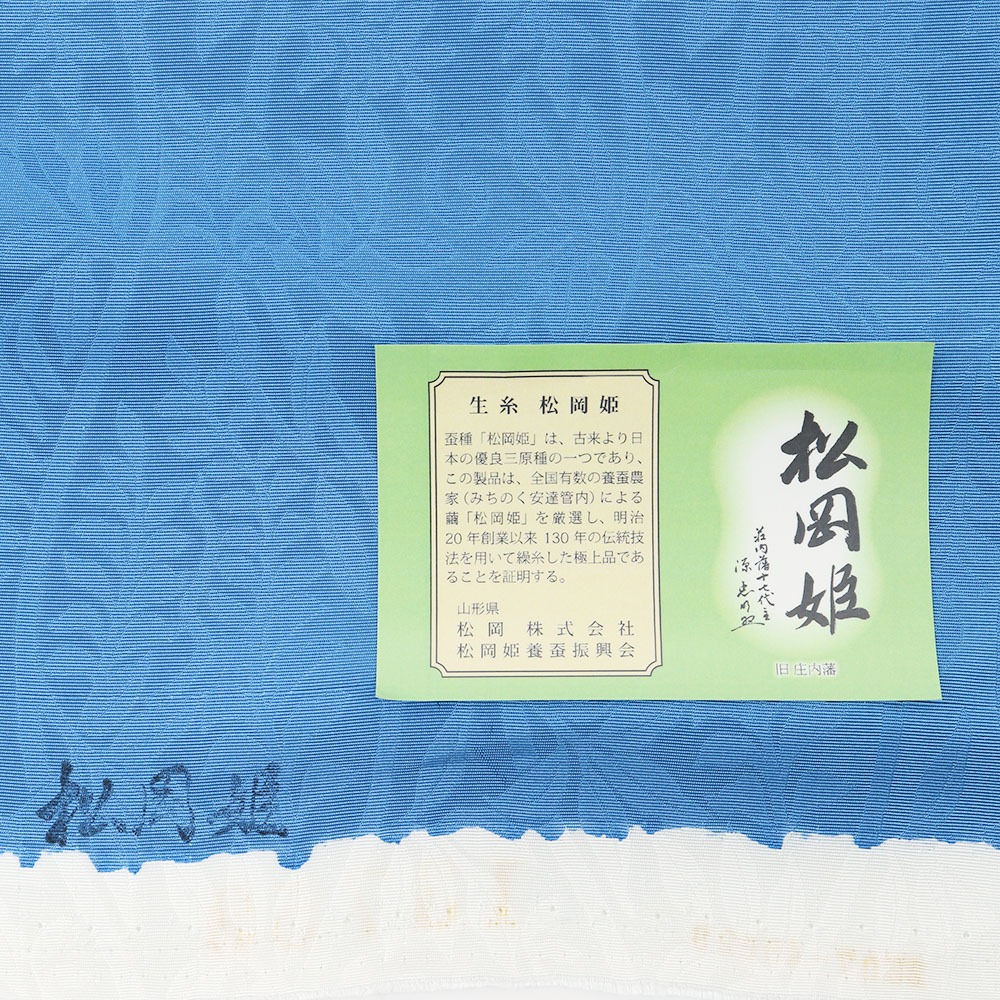 生糸 松岡姫
蚕種「松岡姫」は、古来より日
本の優良三原種の一つであり、
この製品は、全国有数の養蚕農
家（みちのく安達管内）による
繭「松岡姫」を厳選し、明治
20年創業以来130年の伝統技
法を用いて繰糸した極上品であ
ることを証明する。
山形県
松岡 株式会社
松岡姫養蚕振興会
松岡姫
荘内藩十七代主
源忠明
旧 庄内藩
松岡姫